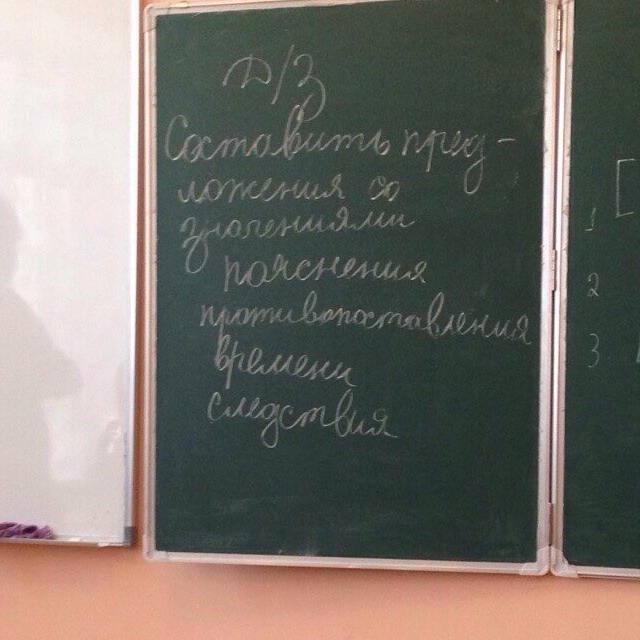 Д/З
Составить пред-
ложения со
значениями
пояснения
противопоставления
времени
следствия
[
1
2
3